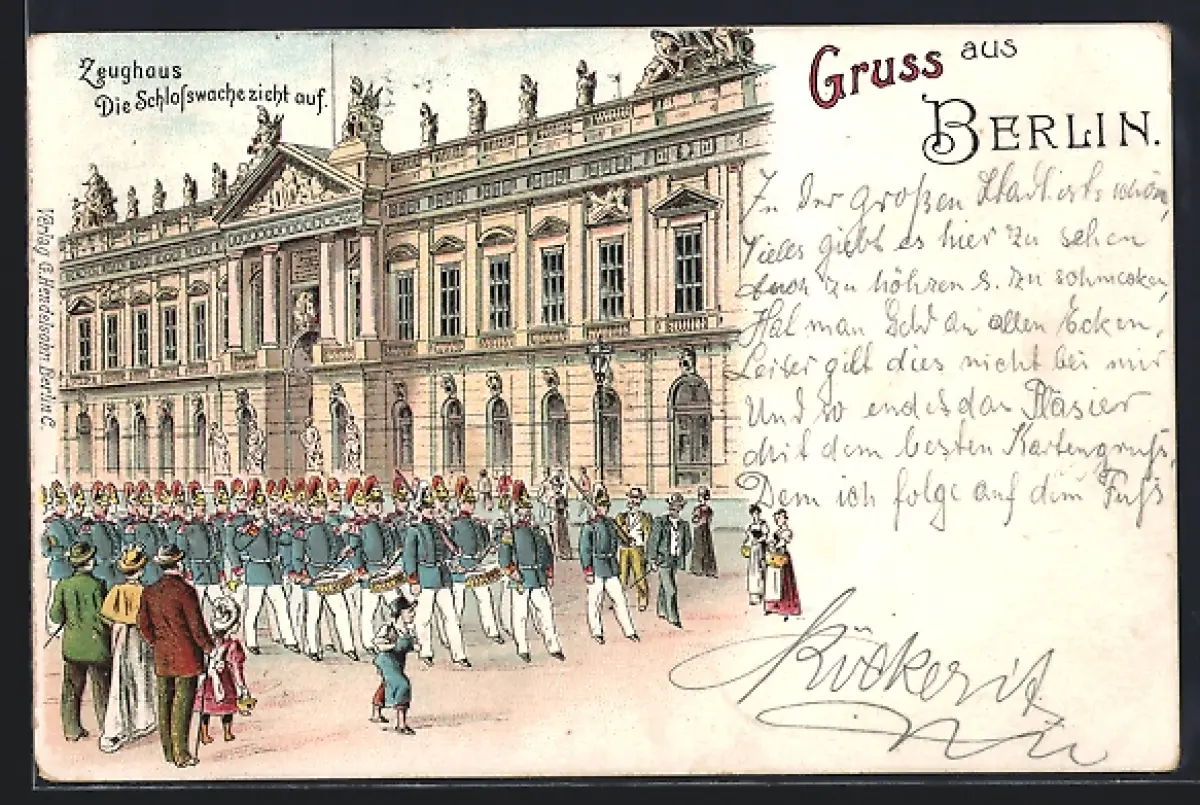 Zeughaus
Die Schloſswache zieht auf.
Gruss aus
BERLIN.
Verlag G. Hendelsohn Berlin C.
In der großen Stadt ists schön,
Vieles giebt es hier zu sehen
Auch zu höhren u. zu schmecken,
Hat man Geld an allen Ecken.
Leider gilt dies nicht bei mir
Und so endet das Pläsier
Mit dem besten Kartengruß,
Dem ich folge auf dem Fuß